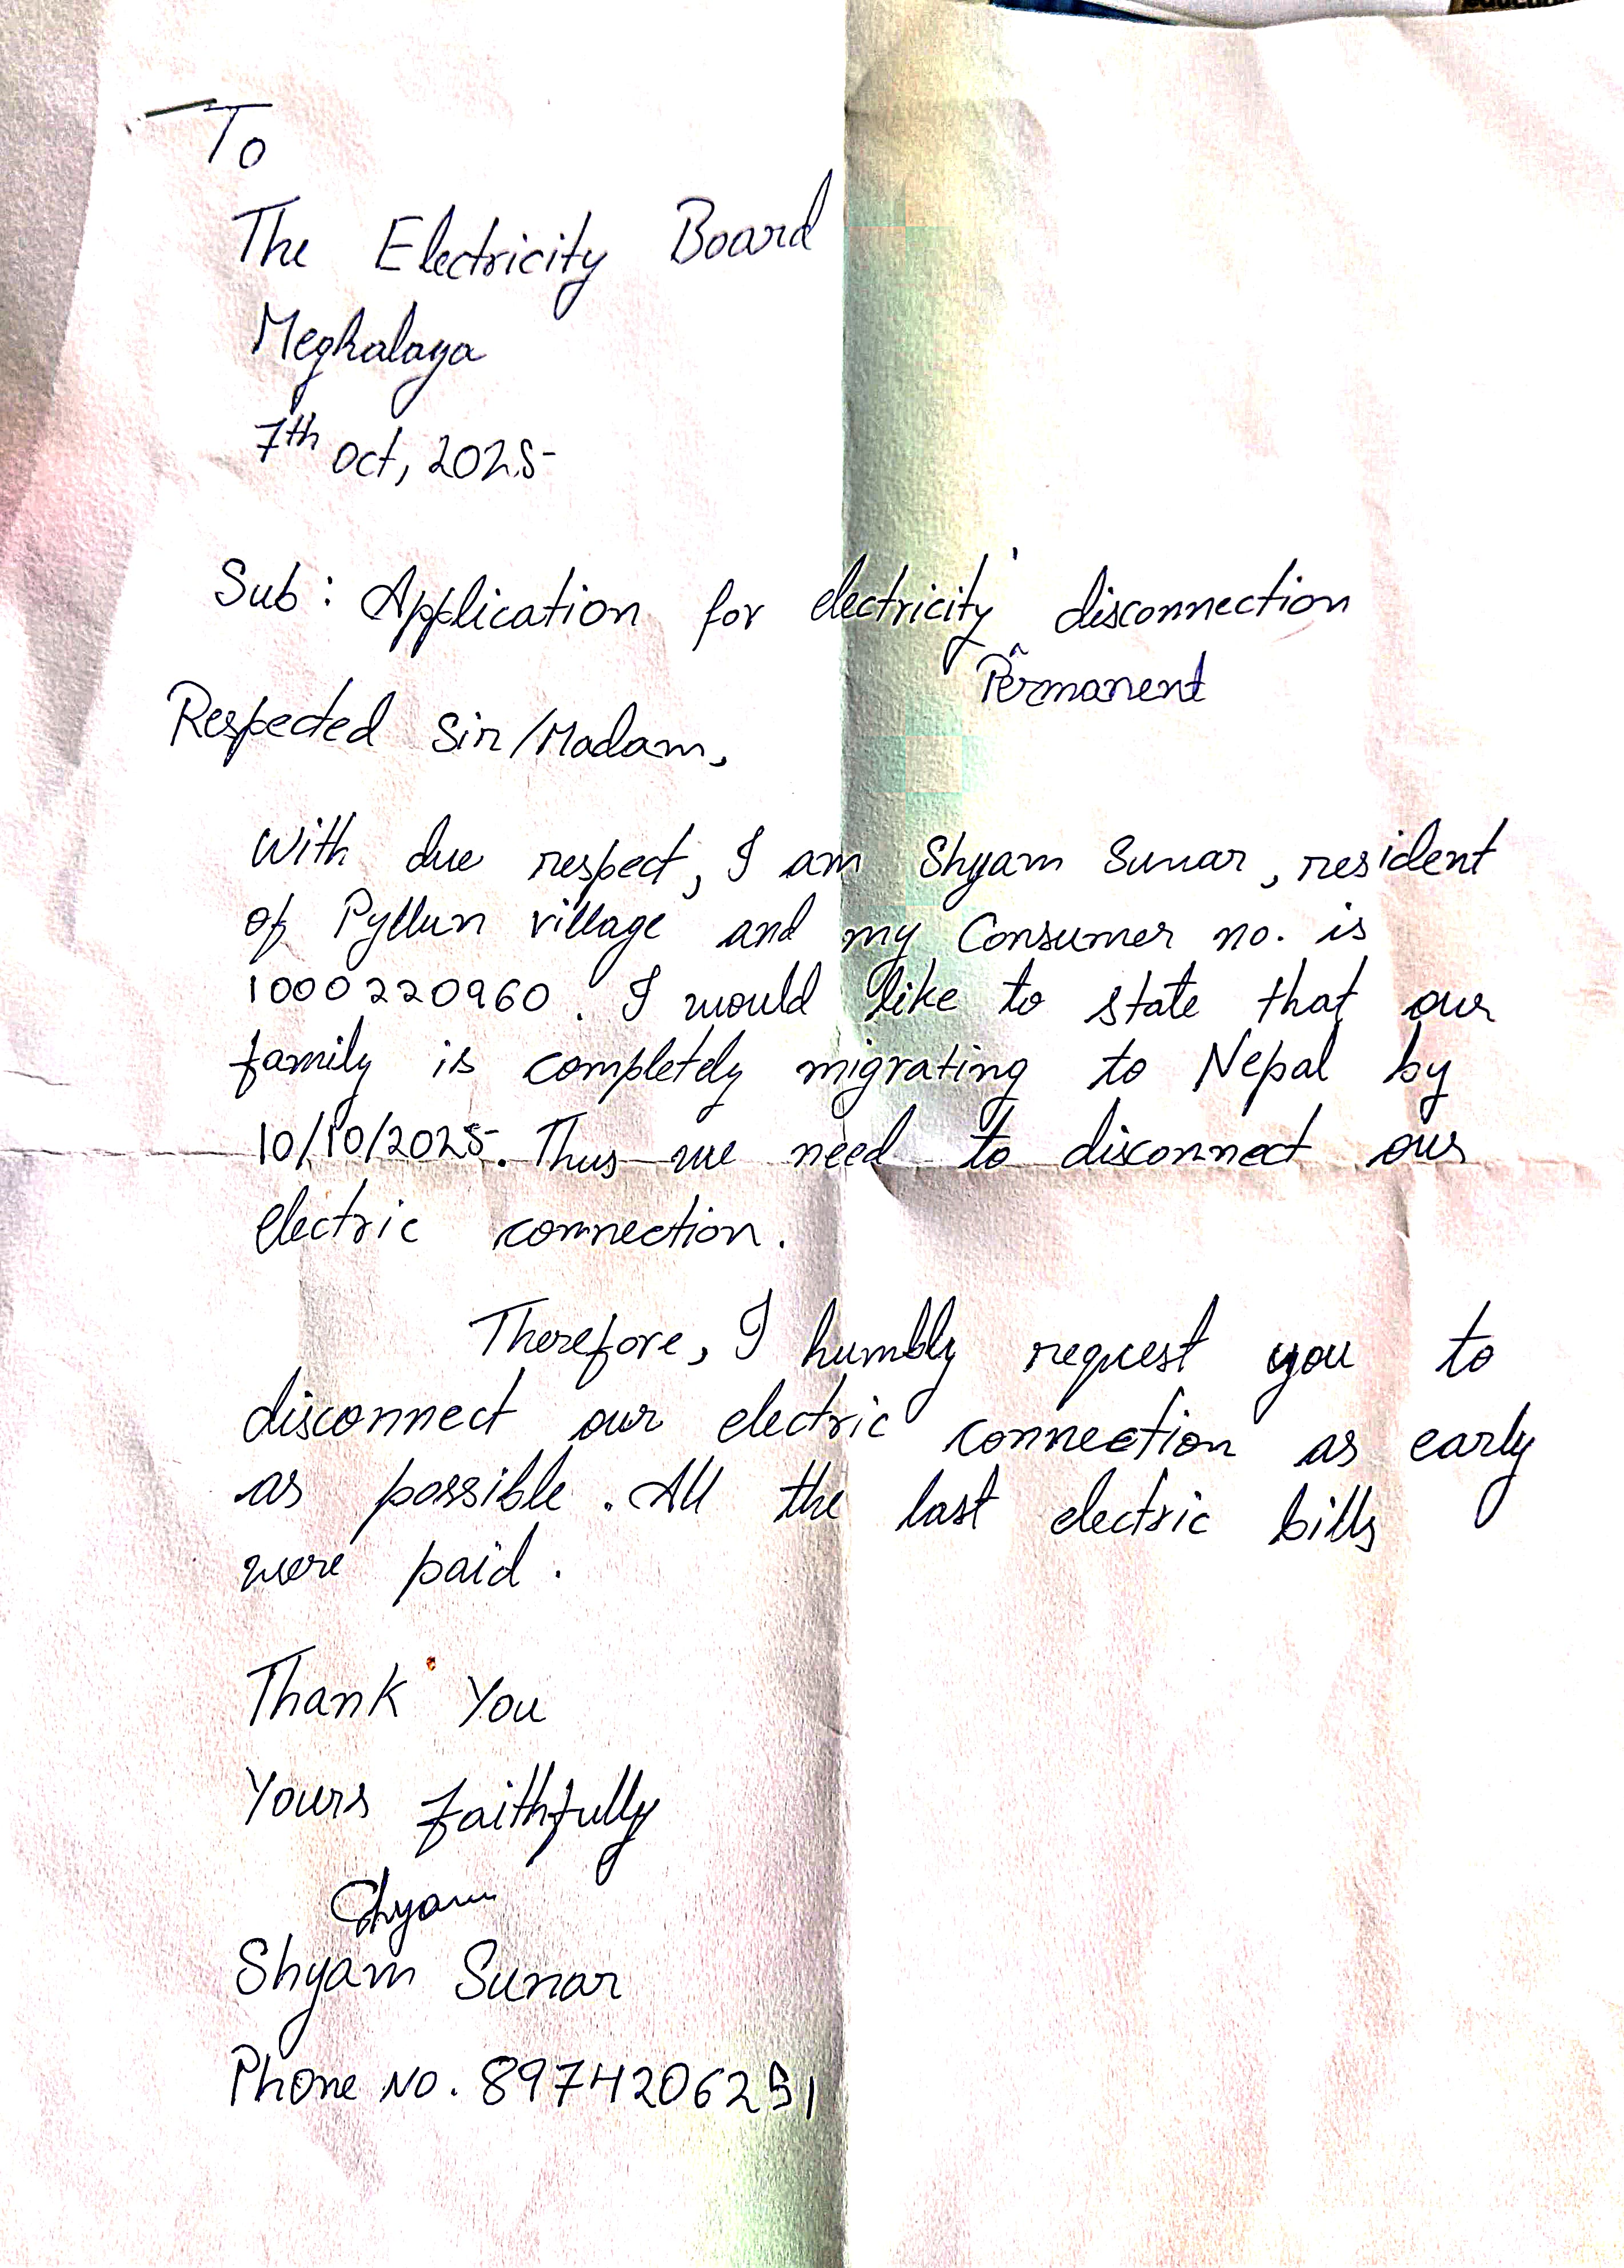 To
The Electricity Board
Meghalaya
7th Oct, 2025
Sub: Application for electricity disconnection
^
Permanent
Respected Sir/Madam,
With due respect, I am Shyam Sunar, resident
of Pyllun village and my Consumer no. is
1000220960. I would like to state that our
family is completely migrating to Nepal by
10/10/2025. Thus we need to disconnect our
electric connection.
Therefore, I humbly request you to
disconnect our electric connection as early
as possible. All the last electric bills
were paid.
Thank You
Yours faithfully
Shyam
Shyam Sunar
Phone No. 8974206251